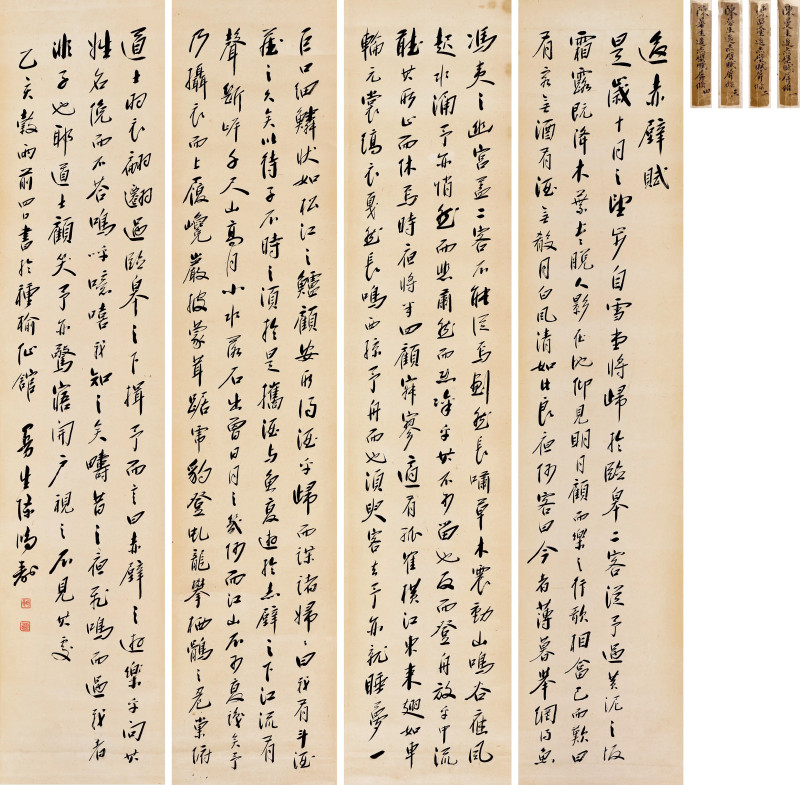 陳曼生後赤壁賦屏條 一
陳曼生後赤壁賦屏條 二
陳曼生後赤壁賦屏條 三
陳曼生後赤壁賦屏條 四
後赤壁賦
是歲十月之望步自雪堂將歸於臨皋二客從予過黃泥之坂
霜露既降木葉盡脫人影在地仰見明月顧而樂之行歌相答已而歎曰
有客無酒有酒無殽月白風清如此良夜何客曰今者薄暮舉網得魚
馮夷之幽宮蓋二客不能從焉劃然長嘯草木震動山鳴谷應風
起水涌予亦悄然而悲肅然而恐凜乎其不可留也反而登舟放乎中流
聽其所止而休焉時夜將半四顧寂寥適有孤雀橫江東來翅如車
輪元裳縞衣戛然長鳴西掠予舟而也須臾客去予亦就睡夢一
巨口細鱗狀如松江之鱸顧安所得酒乎歸而謀諸婦婦曰我有斗酒
藏之久矣以待子不時之須於是攜酒與魚復遊於赤壁之下江流有
聲斷岸千尺山高月小水落石出曾日月之幾何而江山不可復識矣予
乃攝衣而上履巉巖披蒙茸踞虎豹登虬龍攀栖鶻之危巢俯
道士羽衣翩躚過臨皋之下揖予而言曰赤壁之遊樂乎問其
姓名俛而不答嗚呼噫嘻我知之矣疇昔之夜飛鳴而過我者
非子也耶道士顧笑予亦驚寤開戶視之不見其處
乙亥穀雨前四日書於種榆仙館 曼生陳鴻壽